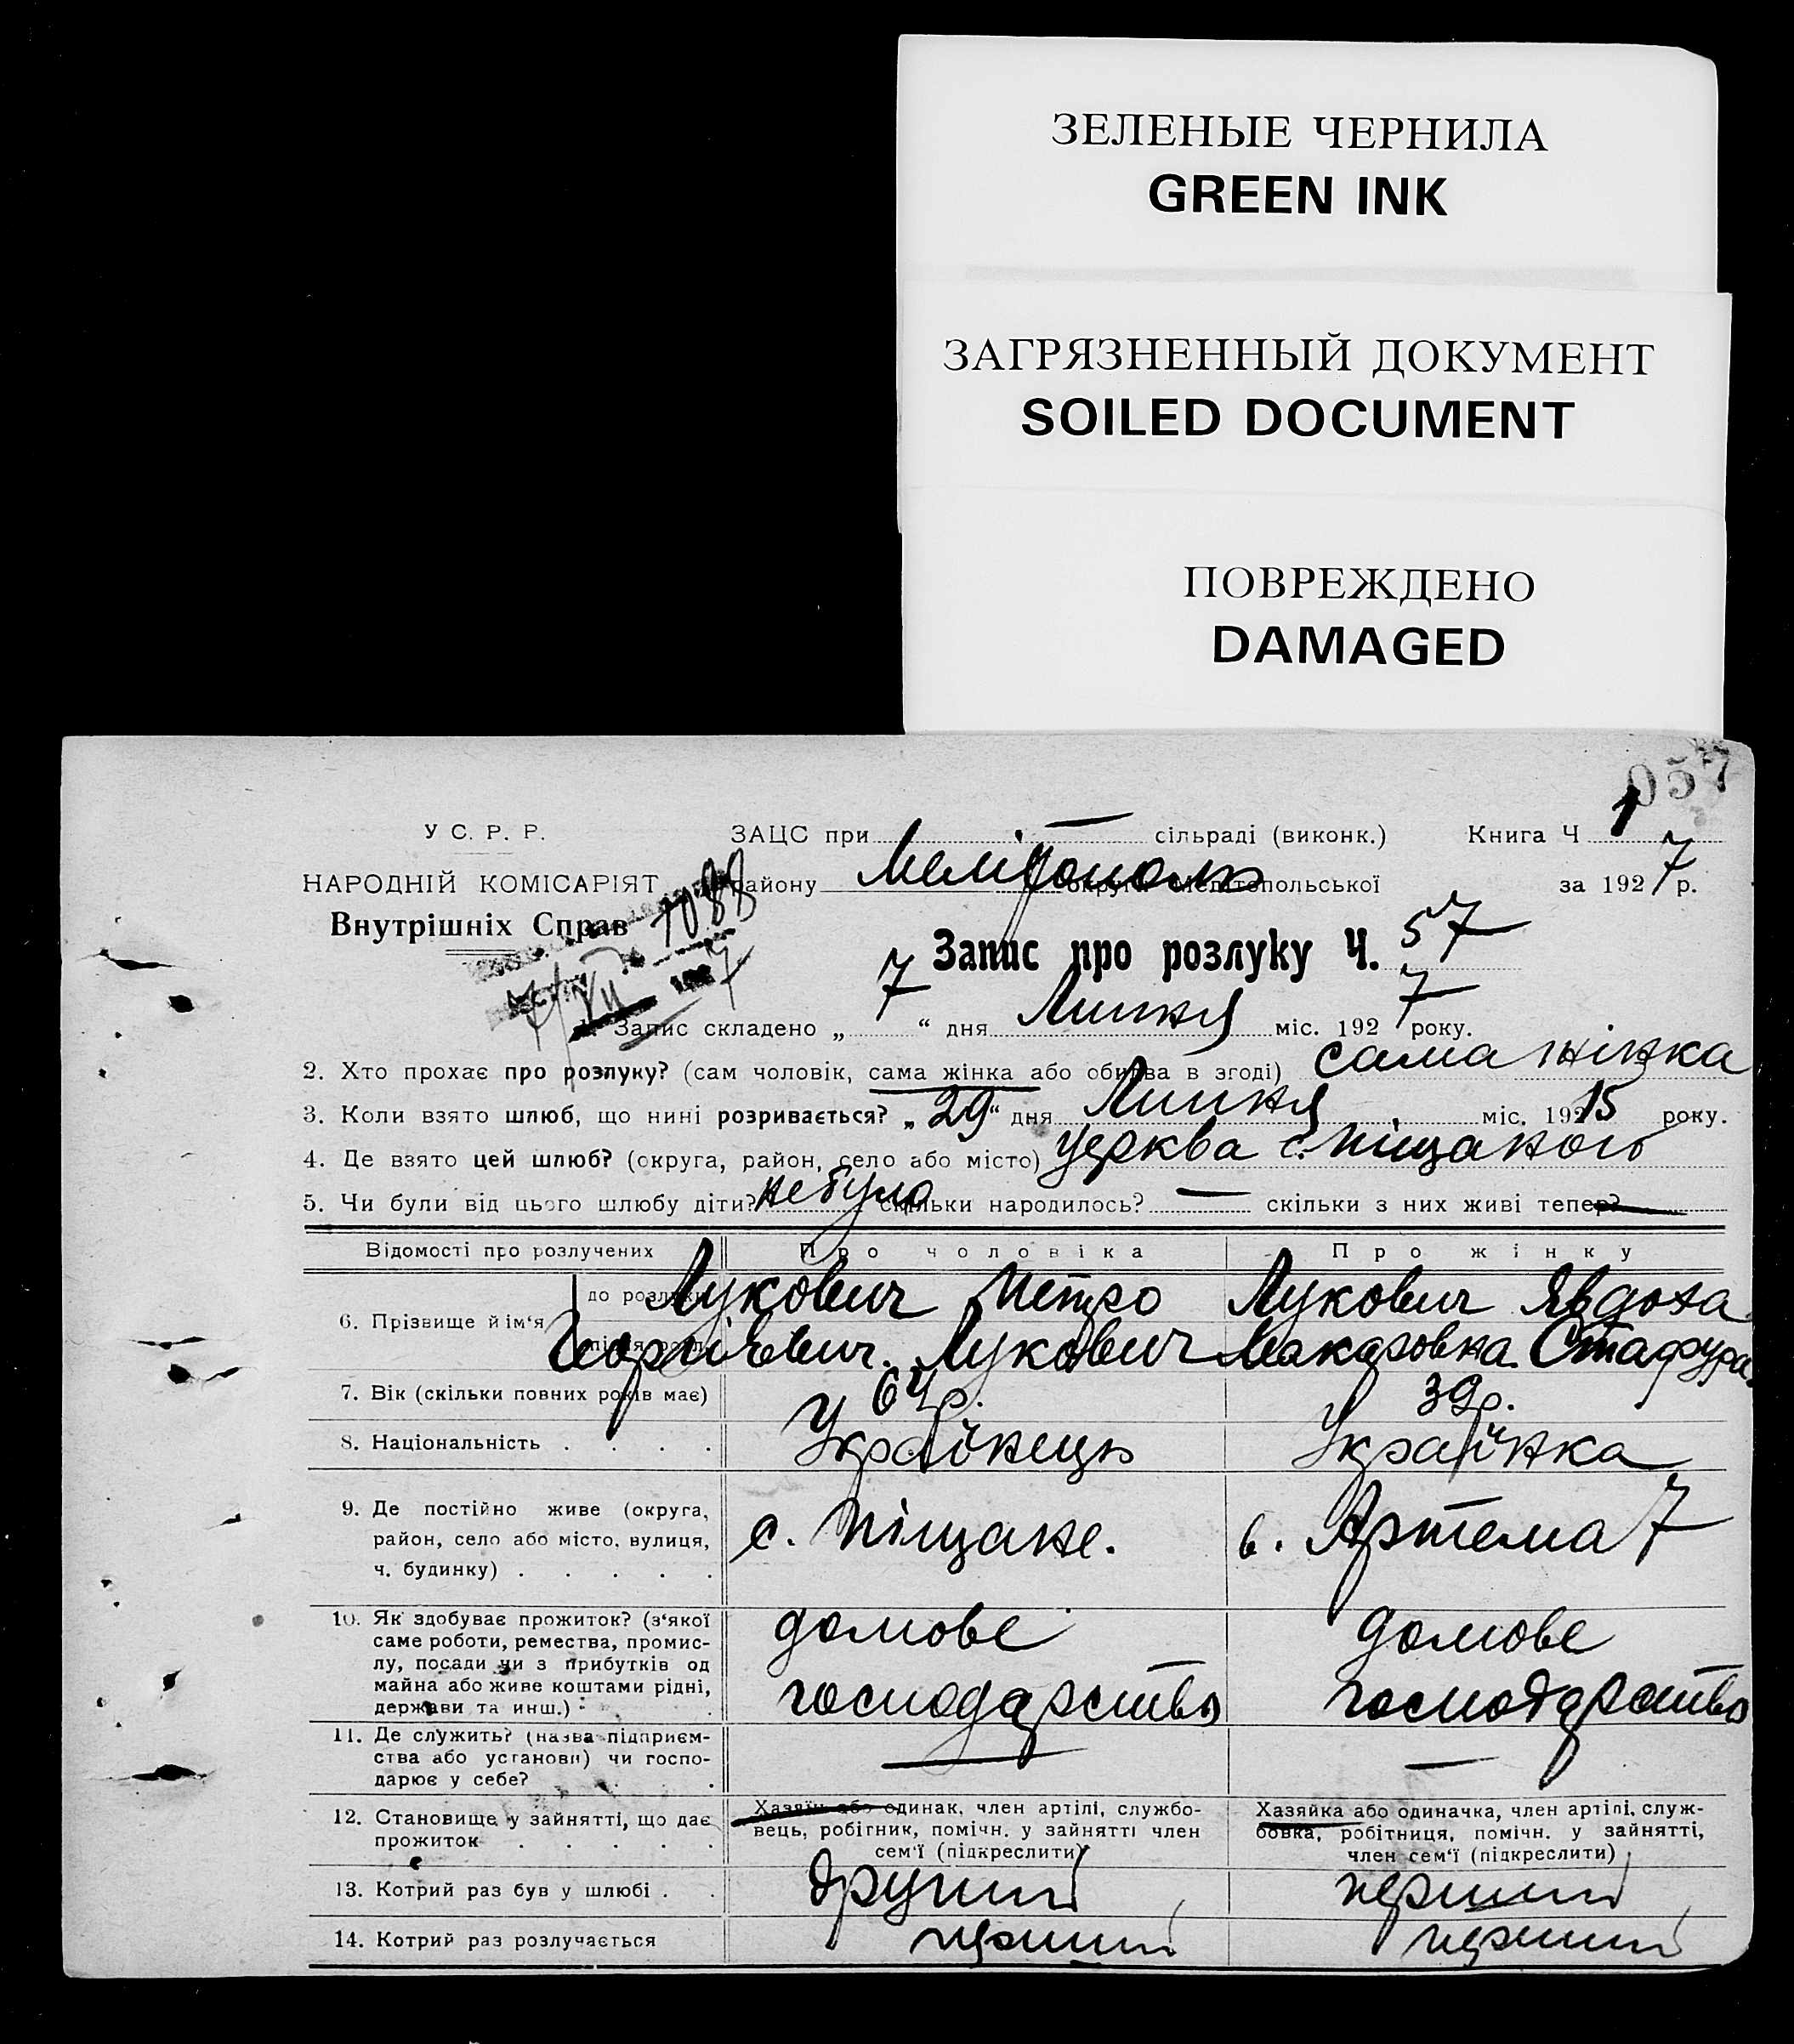 ЗЕЛЕНЫЕ ЧЕРНИЛА
GREEN INK
ЗАГРЯЗНЕННЫЙ ДОКУМЕНТ
SOILED DOCUMENT
ПОВРЕЖДЕНО
DAMAGED
057
У С. Р. Р.
ЗАЦС при — сільраді (виконк.) Книга Ч 1
НАРОДНІЙ КОМІСАРІЯТ
району Мелітополь округи Мелітопольської за 1927 р.
Внутрішніх Справ
1088
7/VII 1927
Запис про розлуку Ч. 57
1. Запис складено „ 7 “ дня Липня міс. 1927 року.
2. Хто прохає про розлуку? (сам чоловік, сама жінка або обидва в згоді) сама жінка
3. Коли взято шлюб, що нині розривається? „29“ дня Липня міс. 19215 року.
4. Де взято цей шлюб? (округа, район, село або місто) церква с. Піщаного
5. Чи були від цього шлюбу діти? не було скільки народилось? — скільки з них живі тепер? —
Відомості про розлучених Про чоловіка Про жінку
6. Прізвище й ім‘я
до розлуки Лукович Петро Лукович Явдоха
після розл. Георгієвич. Лукович Макаровна. Стафура.
7. Вік (скільки повних років має) 64р. 39р.
8. Національність . . . . Українець Українка
9. Де постійно живе (округа,
район, село або місто, вулиця,
ч. будинку) . . . . .
с. Піщане. в. Артема 7
10. Як здобуває прожиток? (з‘якої
саме роботи, ремества, промис-
лу, посади чи з прибутків од
майна або живе коштами рідні,
держави та инш.)
домове
господарство
домове
господарство
11. Де служить? (назва підприєм-
ства або установи) чи госпо-
дарює у себе?
— —
12. Становище у зайнятті, що дає
прожиток . . . . .
Хазяїн або одинак, член артілі, службо-
вець, робітник, помічн. у зайнятті член
сем‘ї (підкреслити)
Хазяйка або одиначка, член артілі, служ-
бовка, робітниця, помічн. у зайнятті,
член сем‘ї (підкреслити)
13. Котрий раз був у шлюбі . . другий перший
14. Котрий раз розлучається перший перший